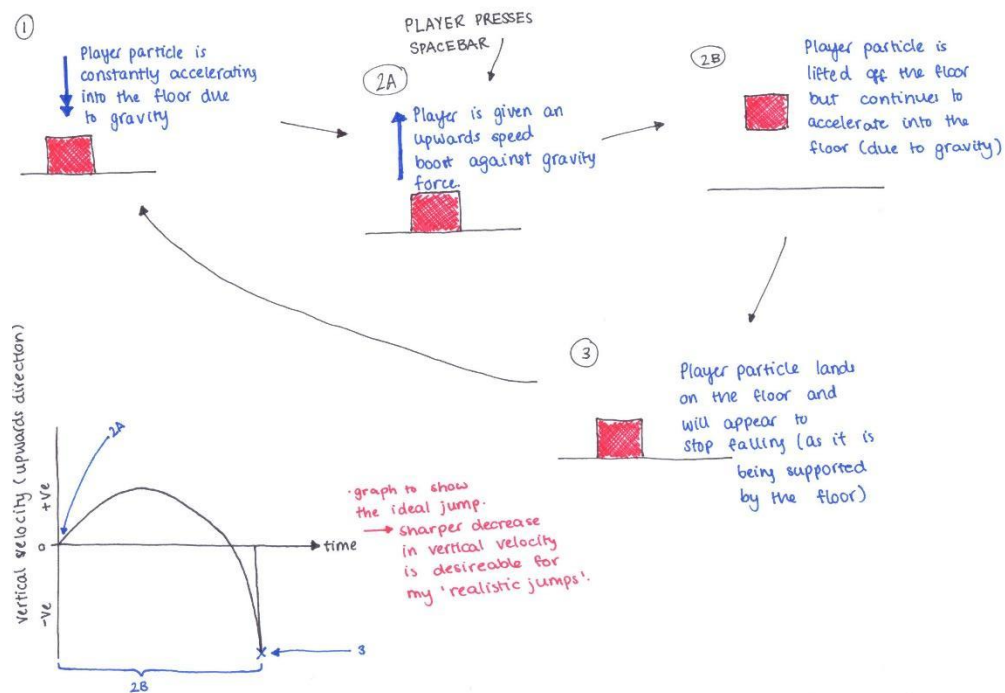 1
Player particle is
constantly accelerating
into the floor due
to gravity
PLAYER PRESSES
SPACEBAR
2A
Player is given an
upwards speed
boost against gravity
force.
2B
Player particle is
lifted off the floor
but continues to
accelerate into the
floor (due to gravity)
3
Player particle lands
on the floor and
will appear to
stop falling (as it is
being supported
by the floor)
vertical velocity (upwards direction)
+ve
0
-ve
2A
time
3
2B
·graph to show
the ideal jump.
→ sharper decrease
in vertical velocity
is desireable for
my 'realistic jumps'.